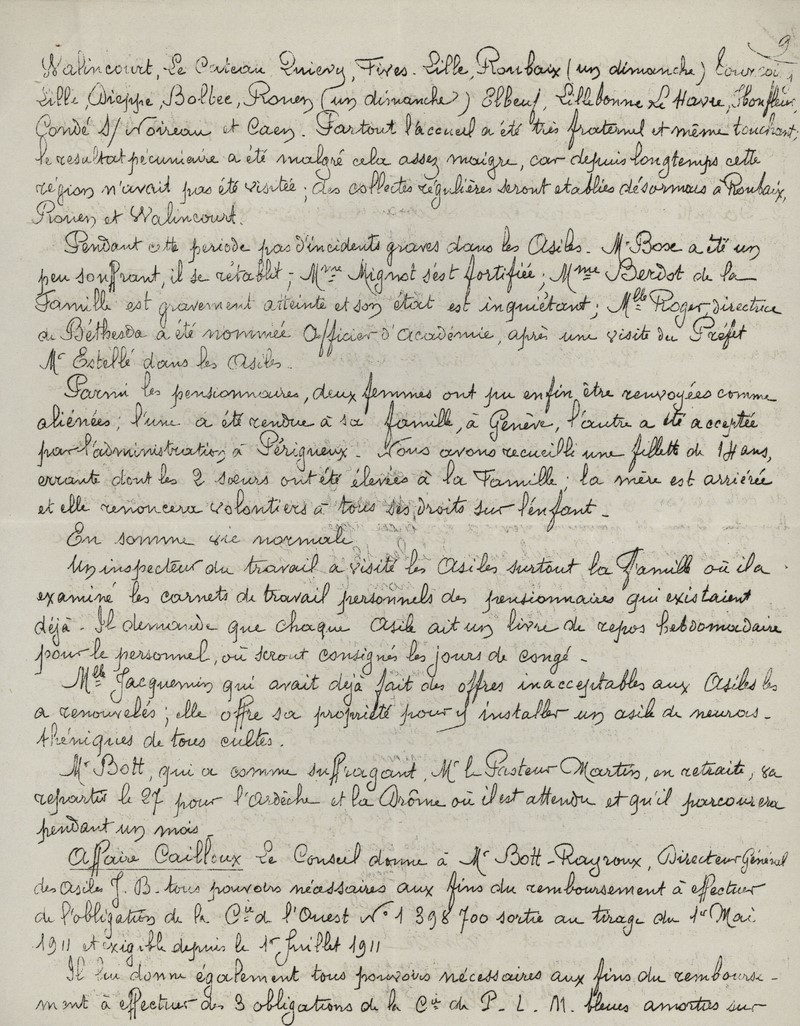 9
Walincourt, Le Cateau Quievy, Fives-Lille, Roubaix (un dimanche) Tourcoi,
Lille, Dieppe, Bolbec, Rouen (un dimanche) Elbeuf, Lillebonne Le Havre, Honfleur,
Condé S/ Noireau et Caen. Partout l'accueil a été très fraternel et même touchant;
le resultat pécuniaire a été malgré cela assez maigre, car depuis longtemps cette
région n'avait pas été visitée; des collectes régulières seront etablies désormais à Roubaix,
Rouen et Walincourt.
Pendant cette periode pas d'incidents graves dans les Asiles. Mr Bose a été un
peu souffrant, il se rétablit; Mme Mignot s'est fortifiée; Mme Berdot de la
Famille est gravement atteinte et son état est inquiétant; Mlle Roger, directrice
de Béthesda a été nommée Officier d'Académie, après une visite du Préfet
Mr Estellé dans les Asiles.
Parmi les pensionnaires, deux femmes ont pu enfin être renvoyées comme
aliénées; l'une a été rendue à sa famille, à Genève, l'autre a été acceptée
par l'administration à Périgueux. Nous avons recueilli une fillette de 14 ans,
errante dont les 2 sœurs ont été élevées à la Famille; la mère est arriérée
et elle renoncera volontiers à tous ses droits sur l'enfant.
En somme vie normale
Un inspecteur du travail a visité les Asiles surtout la Famille où il a
examiné les carnets de travail personnels des pensionnaires qui existaient
déjà. Il demande que chaque Asile ait un livre de repos hebdomadaire
pour le personnel, où seront consignés les jours de congé.
Mlle Jacquemin qui avait déjà fait des offres inacceptables aux Asiles les
a renouvelés; elle offre sa propriété pour y installer un asile de neuras-
théniques de tous cultes.
Mr Bott, qui a comme suffragant, Mr le Pasteur Martin, en retraite, va
repartir le 27 pour l'Ardèche et la Drôme où il est attendu et qu'il parcourera
pendant un mois.
Affaire Cailloux Le Conseil donne à Mr Bott-Rayroux, Directeur Général
des Asiles J. B. tous pouvoirs nécessaires aux fins du remboursement à effectuer
de l'obligation de la Cie de l'Ouest No 1 398 700 sortie au tirage du 1er Mai
1911 et exigible depuis le 1er Juillet 1911
Il lui donne également tous pouvoirs nécessaires aux fins du rembourse-
ment à effectuer des 3 obligations de la Cie du P. L. M. bleues amorties sur